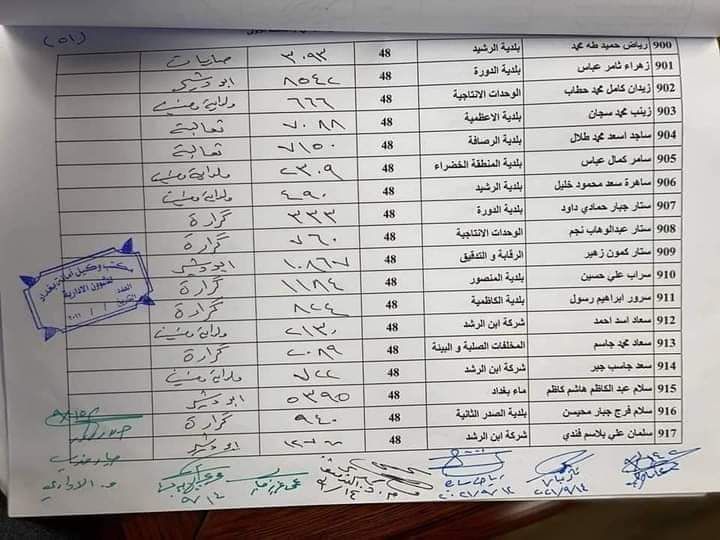 (٥١)
900 رياض حميد طه محمد بلدية الرشيد 48 ٣٠٩٣ صابيات
901 زهراء ثامر عباس بلدية الدورة 48 ٨٥٤٢ ابو دشير
902 زيدان كامل محمد حطاب الوحدات الانتاجية 48 ٦٦٦
903 زينب محمد سجان بلدية الاعظمية 48 ٧٠٨٨ ثعالبة
904 ساجد اسعد محمد طلال بلدية الرصافة 48 ٧١٥٠ ثعالبة
905 سامر كمال عباس بلدية المنطقة الخضراء 48 ٢٣٠٩
906 ساهرة سعد محمود خليل بلدية الرشيد 48 ٤٩٠
907 ستار جبار حمادي داود بلدية الدورة 48 ٣٣٣ كرارة
908 ستار عبدالوهاب نجم الوحدات الانتاجية 48 ٧٦٠ كرارة
909 ستار كمون زهير الرقابة و التدقيق 48 ١٠٨٦٧ ابو دشير
910 سراب علي حسين بلدية المنصور 48 ١١٨٤ كرارة
911 سرور ابراهيم رسول بلدية الكاظمية 48 ٨٢٤ كرارة
912 سعاد اسد احمد شركة ابن الرشد 48 ٢١٣٠
913 سعاد محمد جاسم المخلفات الصلبة و البيئة 48 ٢٠٨٩ كرارة
914 سعد جاسب جبر شركة ابن الرشد 48 ٧٢٢
915 سلام عبد الكاظم هاشم كاظم ماء بغداد 48 ٥٣٩٥ ابو دشير
916 سلام فرج جبار محيسن بلدية الصدر الثانية 48 ٩٤٠ كرارة
917 سلمان علي بلاسم فندي شركة ابن الرشد 48 ابو دشير
مكتب وكيل امانة بغداد
للشؤون الادارية
العدد
التاريخ / / ٢٠٢١
٢٠٢١/٩/١٤
٢٠٢١/٩/١٤
٩/١٤
٩/١٤
م. الاداري